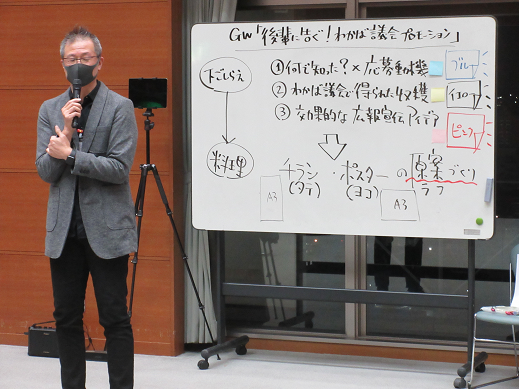 GW「後輩に告ぐ！わかば議会プロモーション」
下ごしらえ
①何で知った？×応募動機 ブルー
②わかば議会で得られた収穫 イエロー
③効果的な広報宣伝アイデア ピンク
料理
チラシ・ポスターの原案づくり
(タテ) (ヨコ) ラフ
A3 A3